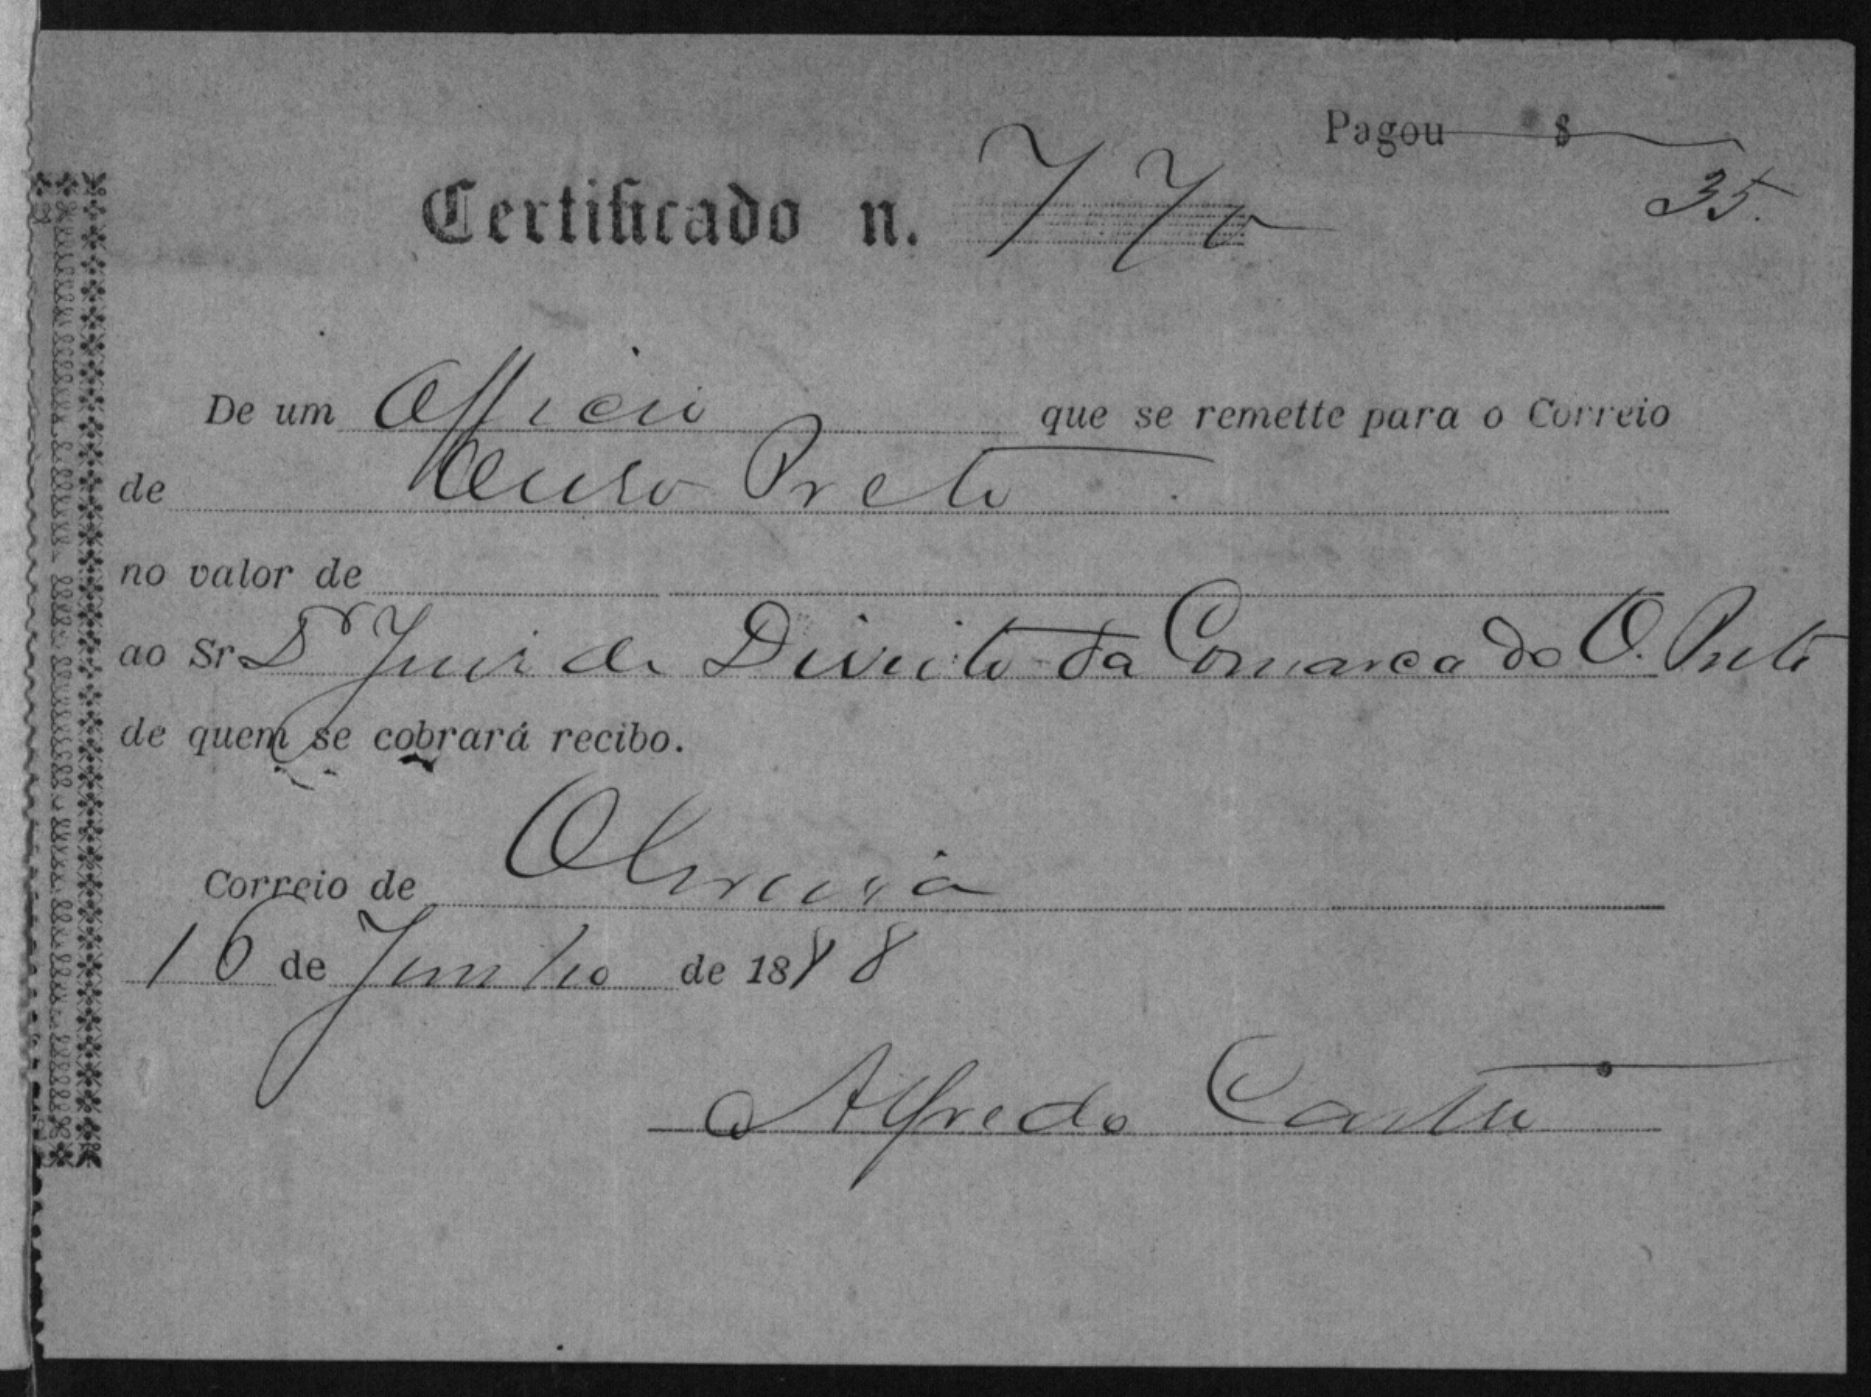 Pagou $
35.
Certificado n. 770
De um Officio que se remette para o Correio
de Ouro Preto
no valor de
ao Sr Dr Juiz de Direito da Comarca do O. Preto
de quem se cobrará recibo.
Correio de Oliveira
16 de Junho de 1888
Alfredo Castro